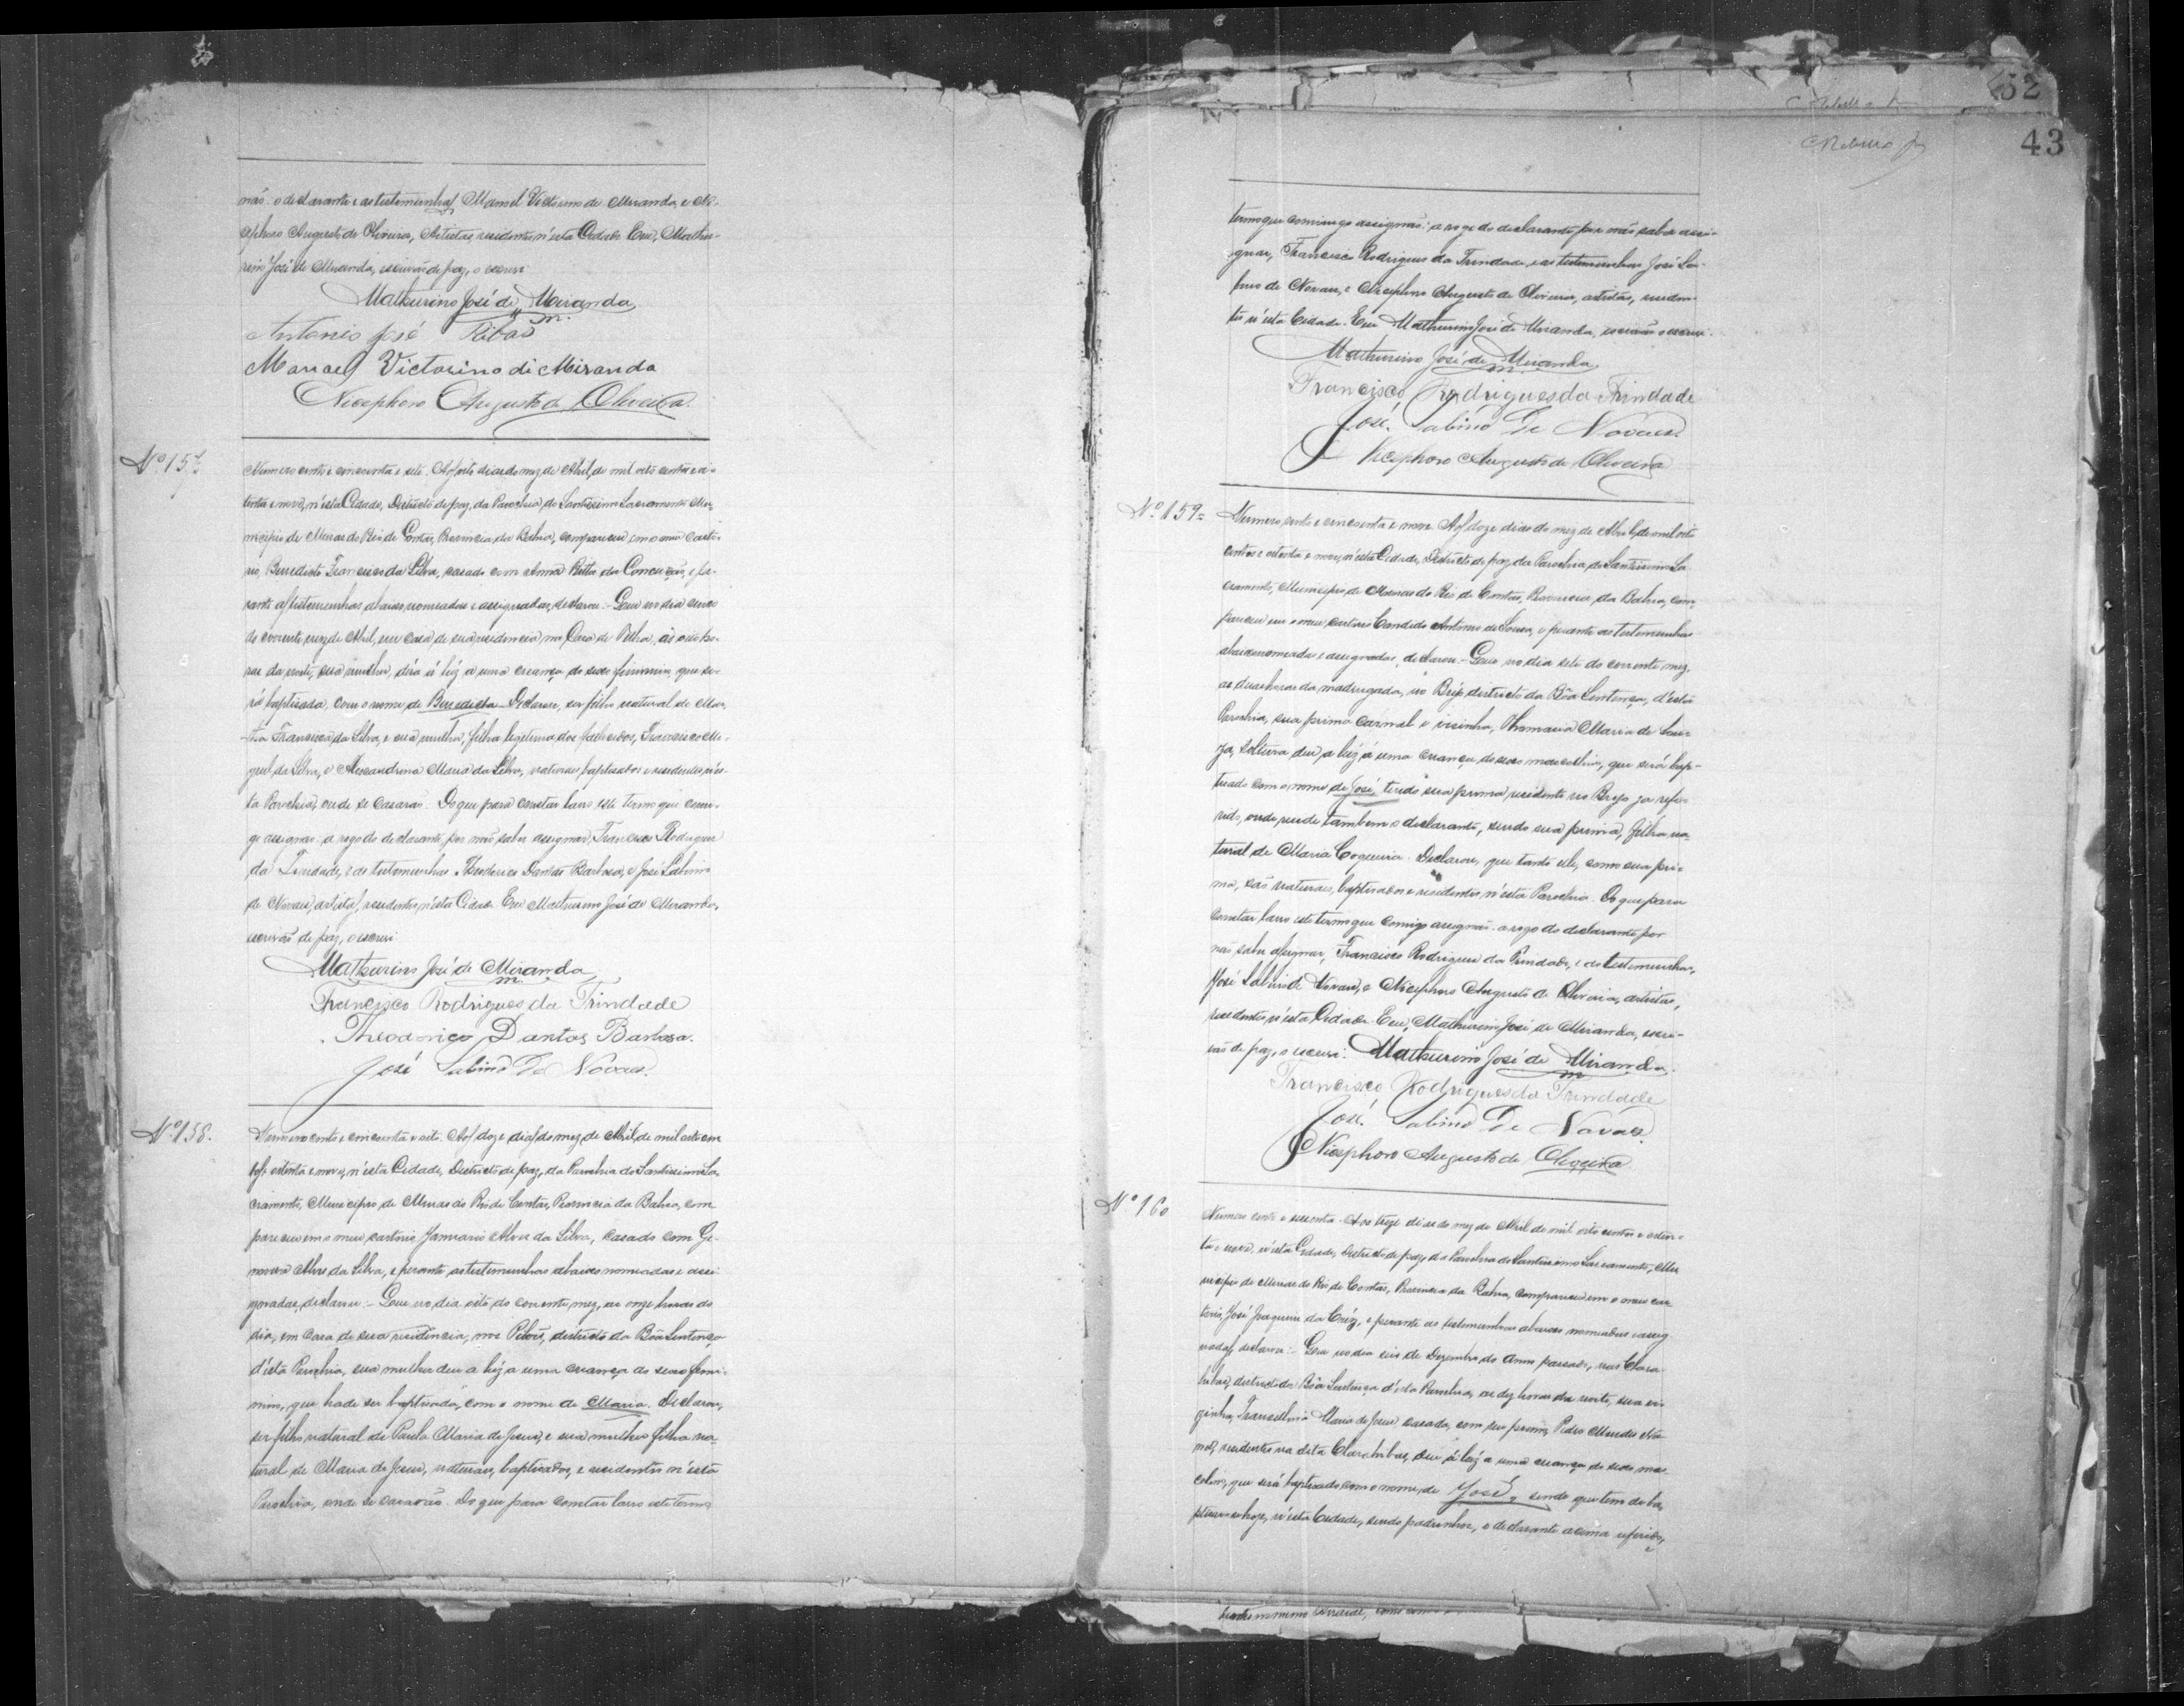 não o declarante e as testemunhas Manoel Victorino de Miranda, e Ni-
cephoro Augusto de Oliveira, Artistas, residentes n'esta Cidade. Eu, Mathu-
rino José de Miranda, escrivão de paz, o escrevi
Mathurino José de Miranda
Antonio José Ribas
Manael Victorino di Miranda
Nicephoro Augusto de Oliveira.
Nº 157
Numero cento e cincoenta e sete. Aos oito dias do mez de Abril, de mil oito centos e oi-
tenta e nove, n'esta Cidade, Districto de paz, da Parochia do Santissimo Sacramento Mu-
nicipio de Minas do Rio de Contas, Provincia da Bahia, compareceu em o meu carto-
rio, Benedicto Francisco da Silva, casado com Anna Ritta da Conceição, e pe-
rante as testemunhas abaixo nomeadas e assignadas, declarou:- Que no dia cinco
do corrente mez de Abril, em casa de sua residencia, na Casa de Telha, ás oito ho-
ras da noite, sua mulher, déra á lúz a uma creança do sexo feminino, que se-
rá baptisada, com o nome de Benedicta. Declarou, ser filho natural de Mar-
tha Francisca da Silva, e sua mulher, filha legitima dos fallecidos, Francisco Mi-
guel da Silva, e Alexandrina Maria da Silva, naturaes, baptisados e residentes n'es-
ta Parochia, onde se casarão. Do que para constar lavro este termo que comi-
go assignão a rogo do declarante, por não saber assignar, Francisco Rodrigues
da Trindade, e as testemunhas Theodorico Dantas Barbosa, e José Sabino
de Novaes, artistas, residentes n'esta Cidade. Eu Mathurino José de Miranda,
escrivão de paz, o escrevi
Mathurino José de Miranda
Francisco Rodrigues da Trindade
Theodorico Dantas Barbosa.
José Sabino De Novaes.
Nº 158.
Numero cento e cincoenta e oito. Aos doze dias do mez de Abril, de mil oito cen
tos oitenta e nove, n'esta Cidade, Districto de paz, da Parochia do Santissimo Sa,
cramento, Municipio de Minas do Rio de Contas, Provincia da Bahia, com
pareceu em o meu cartorio Januario Alves da Silva, casado com Ge-
noveva Alves da Silva, e perante as testemunhas abaixo nomeadas e assi
gnadas, declarou:- Que no dia oito do corrente mez, as onze horas do
dia, em casa de sua residencia, nos Pilões, districto da Bôa Sentença
d'esta Parochia, sua mulher deu a lúz a uma creança do sexo femi-
nino, que hade ser baptisada, com o nome de Maria. Declarou,
ser filho natural de Paula Maria de Jesus, e sua mulher filha na-
tural de Maria de Jesus, naturaes, baptisados, e residentes n'esta
Parochia, onde se casarão. Do que para constar lavro este termo
43
termo que commigo assignão: a rogo do declarante por não saber assi-
gnar, Francisco Rodrigues da Trindade, e as testemunhas José Sa-
bino de Novaes, e Nicephoro Augusto de Oliveira, artistas, residen-
tes n'esta Cidade. Eu Mathurino José de Miranda, escrivão o escrevi.
Mathurino José de Miranda
Francisco Rodrigues da Trindade
José Sabino De Novaes.
Nicephoro Augusto de Oliveira
Nº 159=
Numero cento e cincoenta e nove. Aos doze dias do mez de Abril, de mil oito
centos e oitenta e nove, n'esta Cidade, Districto de paz da Parochia do Santissimo Sa
cramento, Municipio de Minas do Rio de Contas, Provincia da Bahia, com,
pareceu em o meu cartorio Candido Antonio de Souza, e perante as testemunhas
abaixo nomeadas e assignadas, declarou:- Que no dia sete do corrente mez,
as duas horas da madrugada, no Brejo, districto da Bôa Sentença, d'esta
Parochia, sua prima carnal e visinha, Maria de Sou-
za, solteira deu a lúz á uma creança do sexo masculino, que será bap-
tisado com o nome de José, tendo sua prima residente no Brejo ja refe-
rido, onde reside tambem o declarante, sendo sua prima, filha na-
tural de Maria. Declarou, que tanto elle, como sua pri-
ma, são naturaes, baptisados e residentes n'esta Parochia. Do que para
constar lavro este termo que comigo assignão a rogo do declarante por
não saber assignar, Francisco Rodrigues da Trindade, e as testemunhas,
José Sabino de Novaes, e Nicephoro Augusto de Oliveira, artistas,
residentes n'esta Cidade. Eu, Mathurino José de Miranda, escri-
vão de paz, o escrevi. Mathurino José de Miranda.
Francisco Rodrigues da Trindade
José Sabino De Novaes.
Nicephoro Augusto de Oliveira
Nº 160
Numero cento e sessenta. Aos treze dias do mez de Abril de mil oito centos e oiten-
ta e nove, n'esta Cidade, Districto de paz, da Parochia do Santissimo Sacramento, Mu
nicipio de Minas do Rio de Contas, Provincia da Bahia, compareceu em o meu car
torio, José Joaquim da Crúz, e perante as testemunhas abaixo nomeadas e assig
nadas, declarou:- Que no dia seis de Dezembro do anno passado, nas
districto da Bôa Sentença d'esta Parochia, as dez horas da noite, sua vi-
zinha, Maria de Jesus casada, com seu primo, Pedro Mendes
residentes na dita deu á lúz a uma creança do sexo mas
colino, que será baptisado com o nome de José, sendo que tem de ba,
ptisar-se hoje, n'esta Cidade, sendo padrinhos, o declarante acima referido,
e